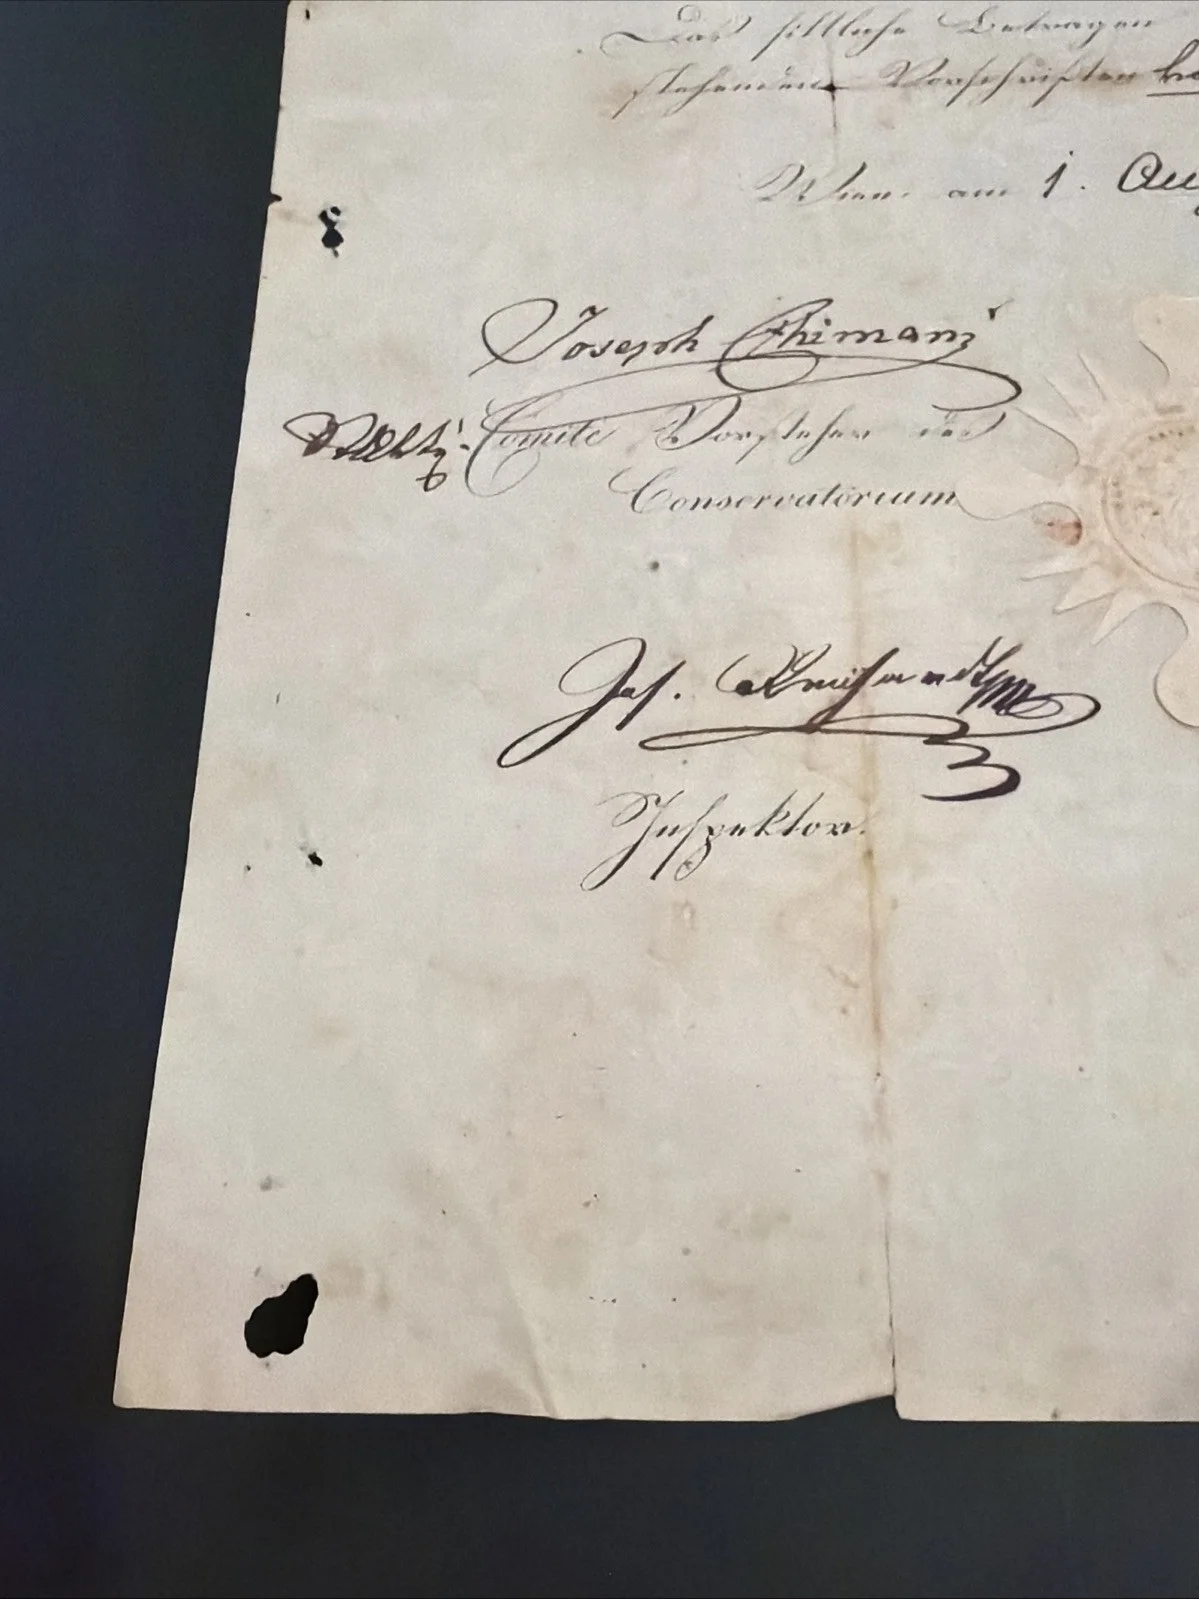 Das sittliche Betragen
stehenden Vorschriften
Wien am 1. Au
Joseph Chimani
Comité Vorsteher des
Conservatorium
Jos.
Inspektor.